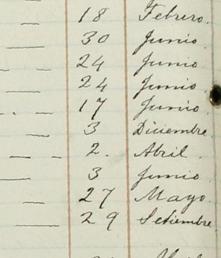 18 Febrero.
30 Junio
24 Junio
24 Junio
17 Junio
3 Diciembre
2. Abril
3 Junio
27 Mayo
29 Setiembre